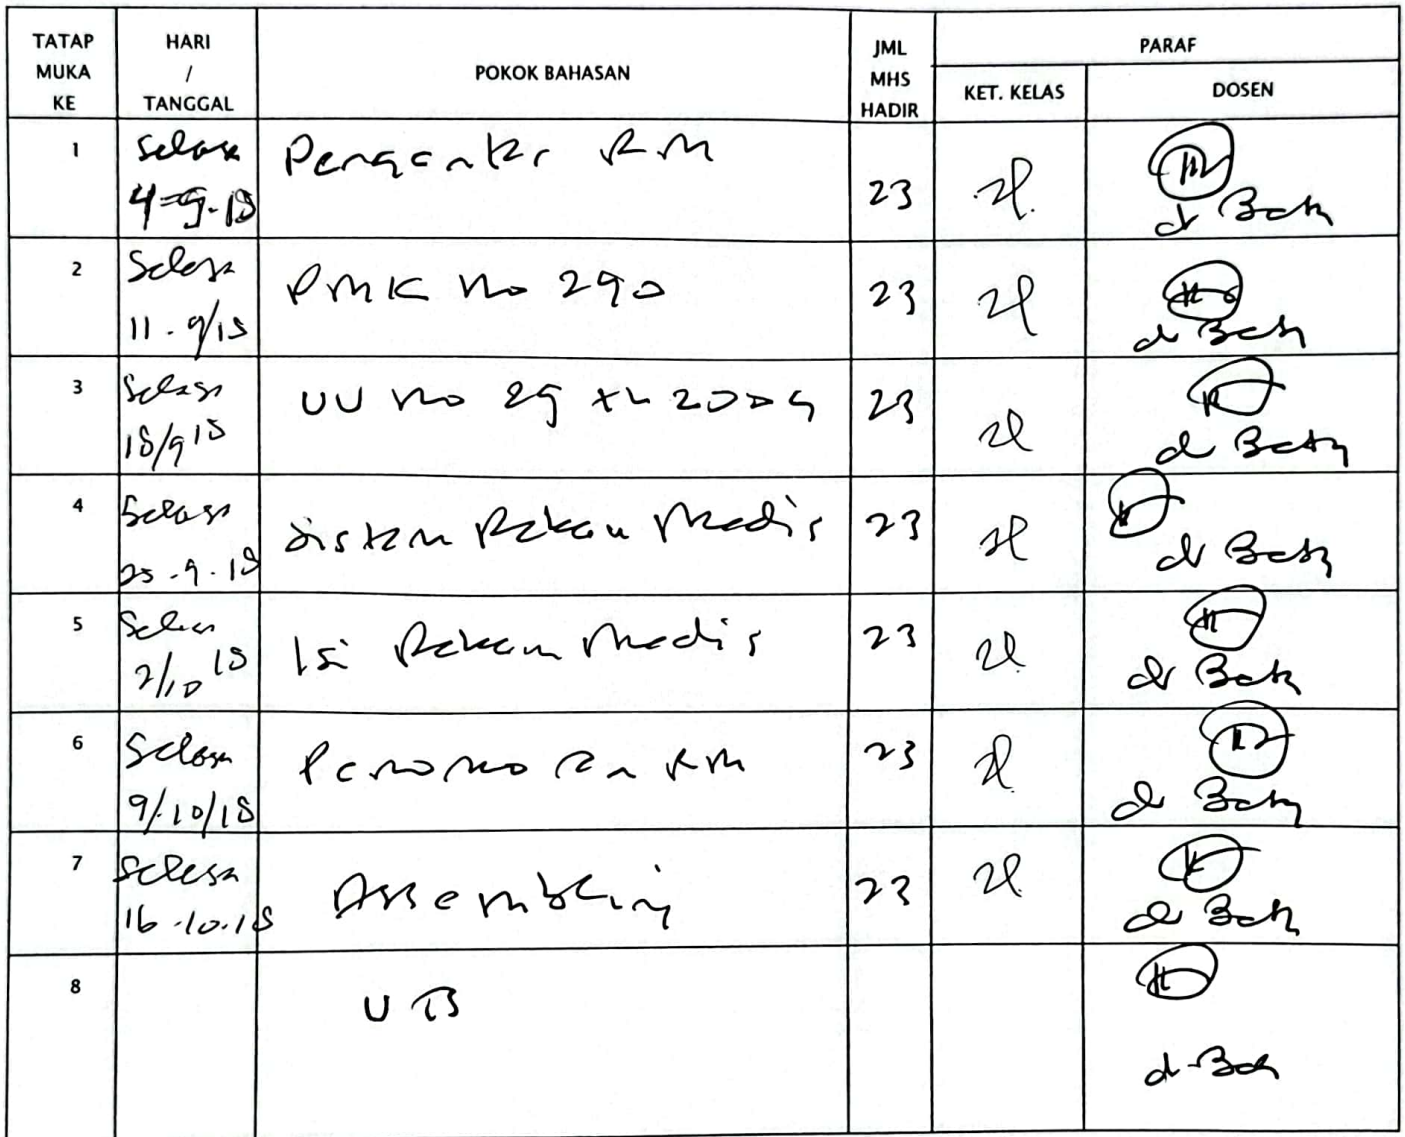 TATAP MUKA KE
HARI / TANGGAL
POKOK BAHASAN
JML MHS HADIR
PARAF
KET. KELAS
DOSEN
1
Selasa
4-9-18
Pengantar RM
23
2
Selasa
11-9/18
PMK No 290
23
3
Selasa
18/9 18
UU No 29 th 2004
23
4
Selasa
25-9-18
Sistem Rekam Medis
23
5
Selasa
2/10 18
Isi Rekam Medis
23
6
Selasa
9/10/18
Penomoran RM
23
7
Selasa
16-10-18
Assembling
23
8